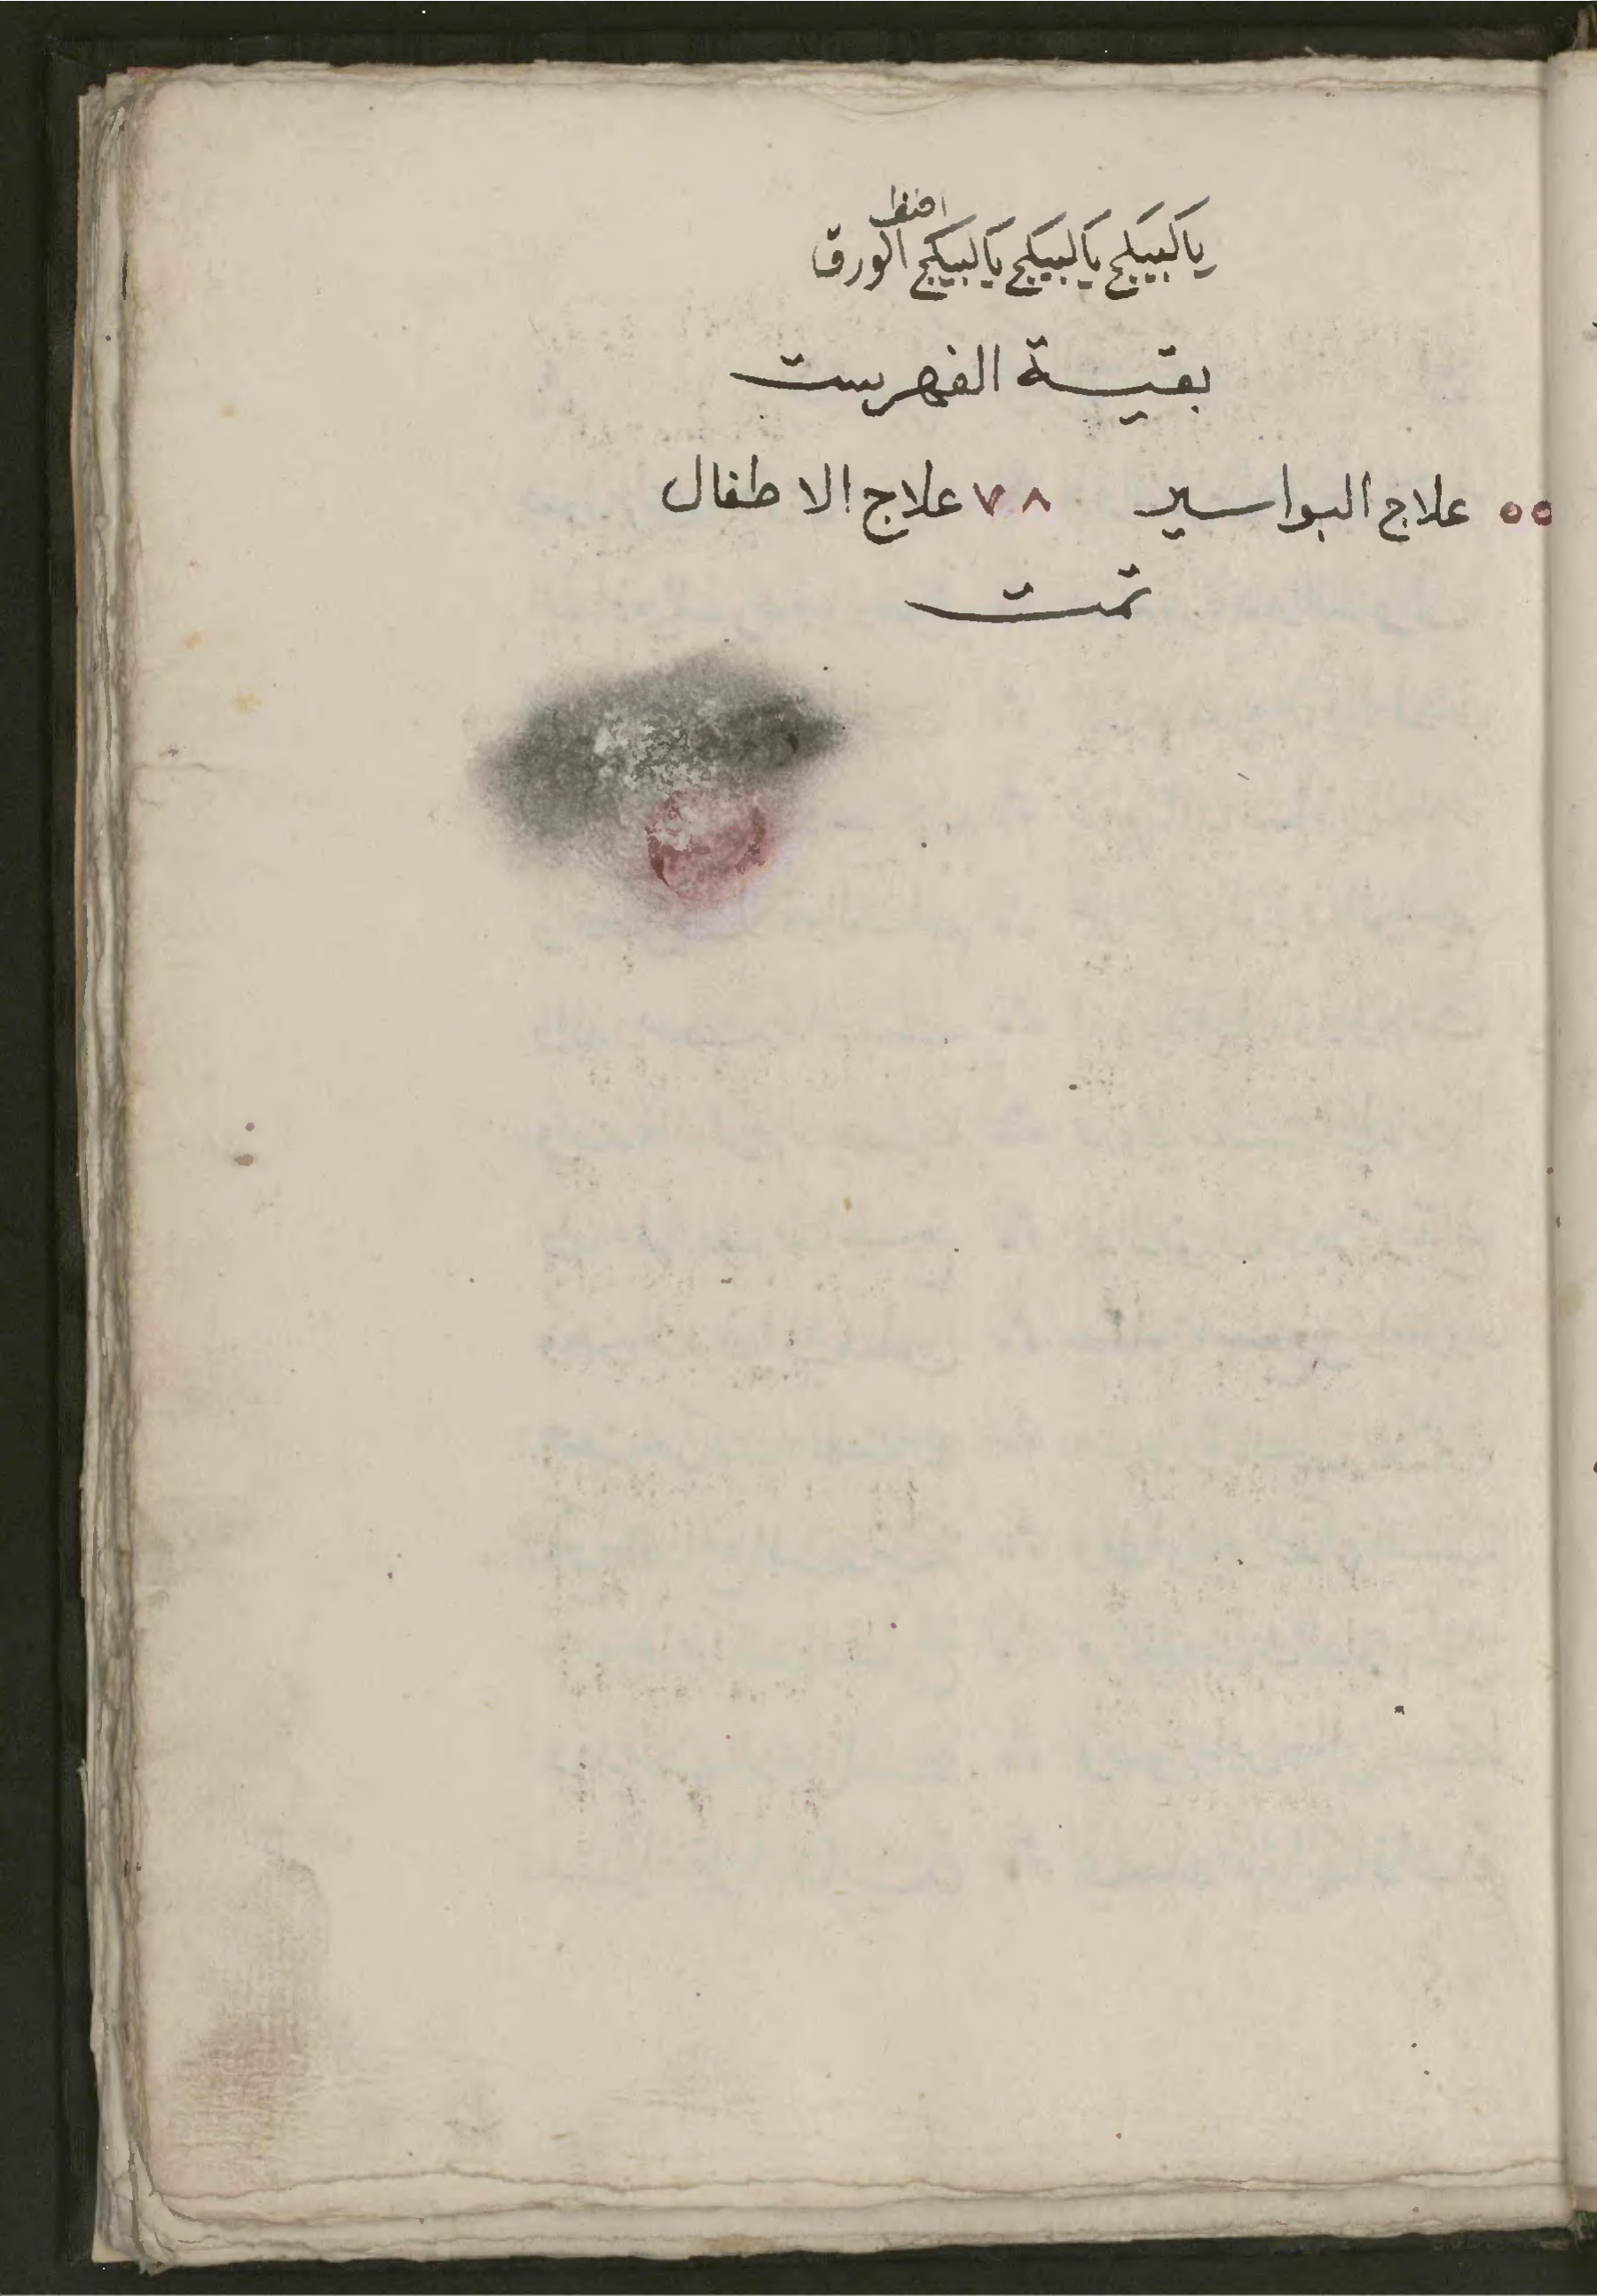 احفظ
يا كبيكج يا كبيكج يا كبيكج الورق
بقية الفهرست
٥٥ علاج البواسير ٧٨ علاج الاطفال
تمت